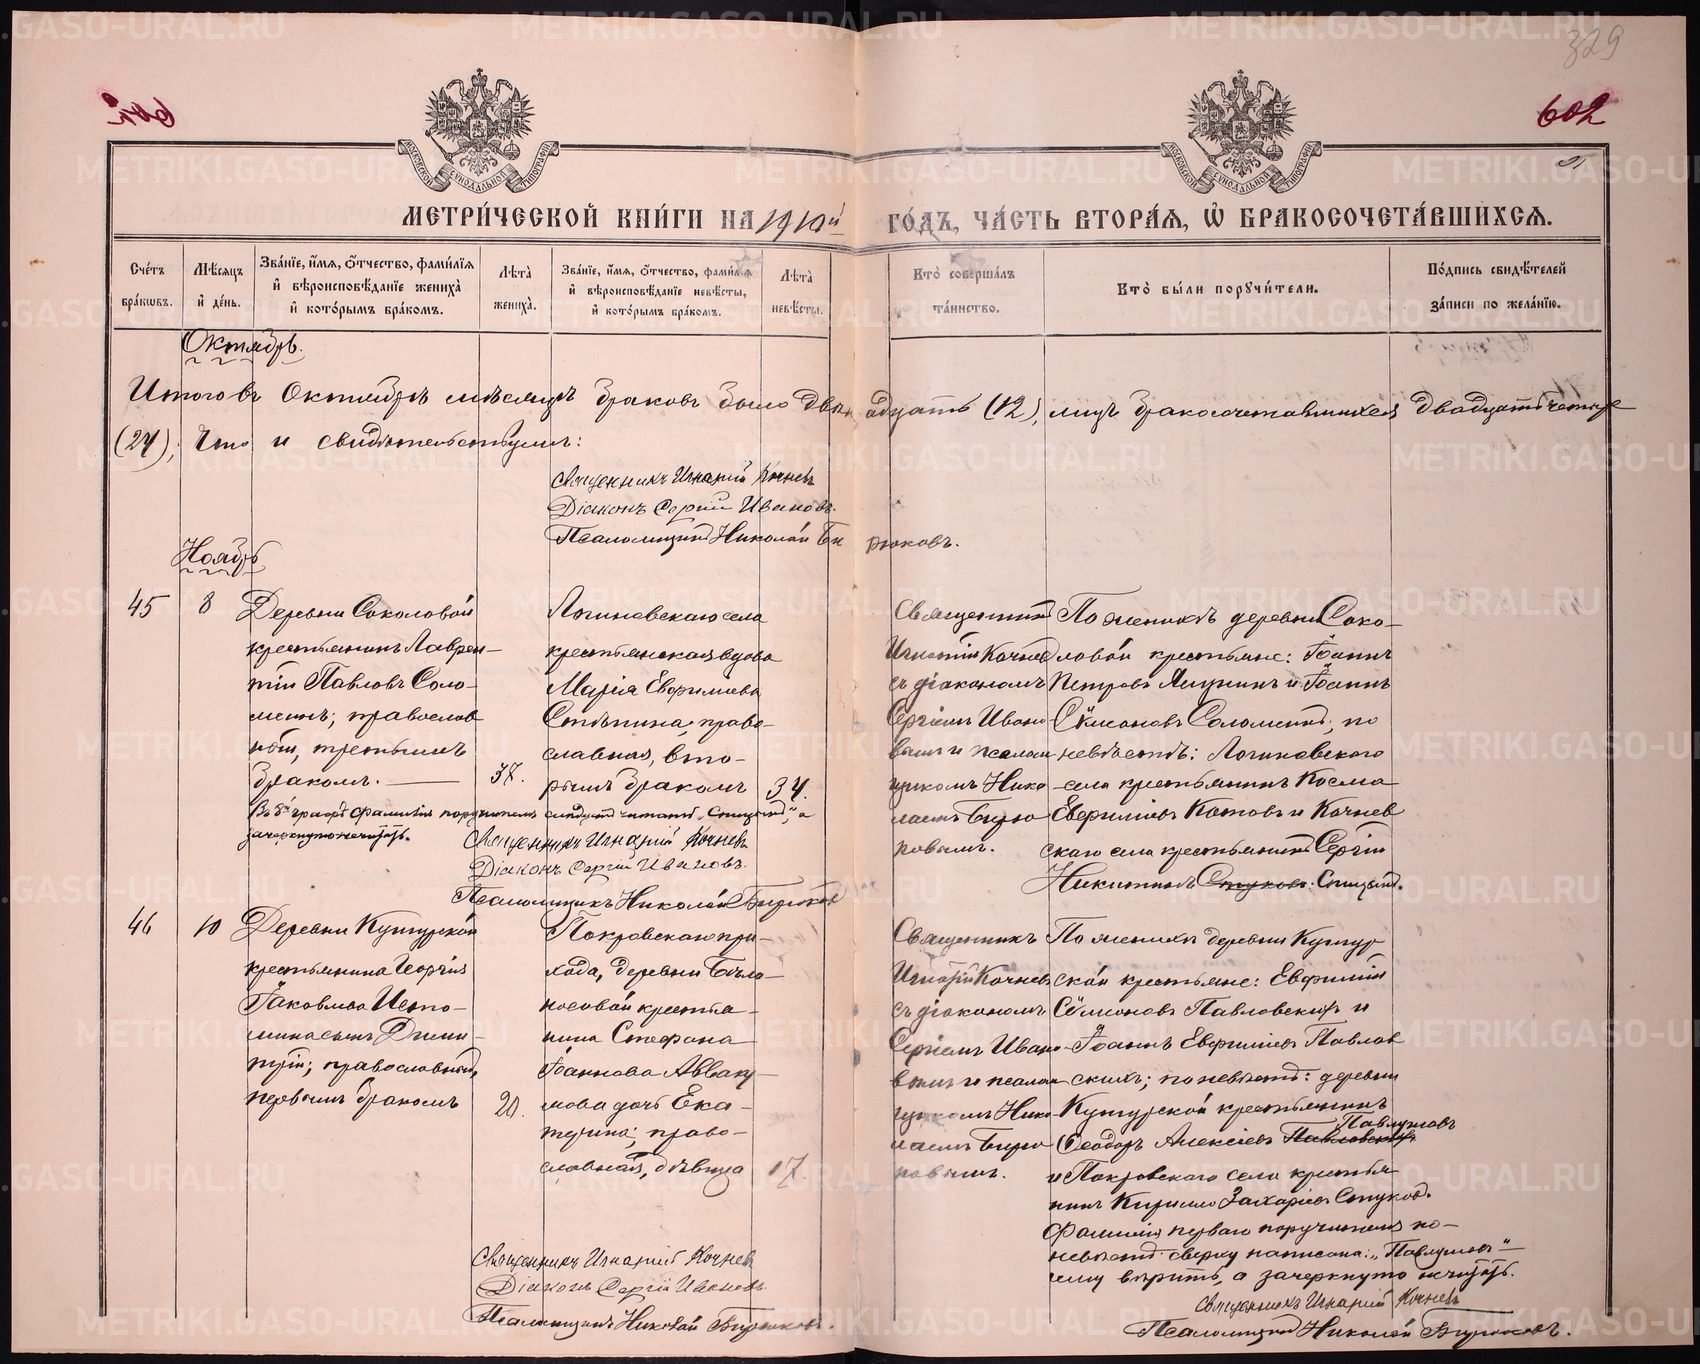 329
602
МЕТРИ́ЧЕСКОЙ КНИ́ГИ НА 1910й ГО́ДЪ, ЧА́СТЬ ВТОРА́Я, Ѡ БРАКОСОЧЕТА́ВШИХСЯ.
Сче́тъ бра́ковъ.
Мѣ́сяцъ и де́нь.
Зва́нїе, и́мя, о́тчество, фами́лїя и вѣроисповѣ́данїе жениха̀ и кото́рымъ бра́комъ.
Лѣта̀ жениха̀.
Зва́нїе, и́мя, о́тчество, фами́лїя и вѣроисповѣ́данїе невѣ́сты, и кото́рымъ бра́комъ.
Лѣта̀ невѣ́сты.
Кто̀ соверша́лъ та́инство.
Кто̀ бы́ли поручи́тели.
По́дпись свидѣ́телей за́писи по жела́нїю.
Октябрь.
Итого въ Октябрѣ мѣсяцѣ браковъ было двѣнадцать (12), лицъ бракосочетавшихся двадцать четыре
(24); Что и свидѣтельствуемъ:
Священникъ Игнатій Кочневъ
Діаконъ Сергій Ивановъ.
Псаломщикъ Николай Бирюковъ.
Ноябрь
45
8
Деревни Соколовой
крестьянинъ Лаврен-
тій Павловъ Соло-
меинъ; православ
ный, третьимъ
бракомъ.
37.
Логиновскаго села
крестьянская вдова
Марія Евфиміева
Стѣпина; право-
славная, вто-
рымъ бракомъ
34.
Священникъ
Игнатій Кочневъ
съ діакономъ
Сергіемъ Ивано
вымъ и псалом
щикомъ Нико
лаемъ Бирю
ковымъ.
По женихѣ деревни Соко-
ловой крестьяне: Іоаннъ
Петровъ Ячунинъ и Іоаннъ
Сѵмеоновъ Соломеинъ; по
невѣстѣ: Логиновскаго
села крестьянинъ Косма
Евфиміевъ Котовъ и Кочнев
скаго села крестьянинъ Сергій
Никитинъ
Въ 8й графѣ фамилія поручителя слѣдуетъ читать
зачеркнуто не читать.
Священникъ Игнатій Кочневъ
Діаконъ Сергій Ивановъ.
Псаломщикъ Николай Бирюковъ
46
10
Деревни Кунгурской
крестьянина Георгія
Іаковлева Исто-
мина сынъ Дими-
трій; православный,
первымъ бракомъ
20.
Покровскаго при-
хода, деревни Бѣло-
носовой крестья-
нина Стефана
Іоаннова Авваку-
мова дочь Ека-
терина; право-
славная, дѣвица
17.
Священникъ
Игнатій Кочневъ
съ діакономъ
Сергіемъ Ивано-
вымъ и псалом
щикомъ Нико-
лаемъ Бирю
ковымъ.
По женихѣ деревни Кунгур
ской крестьяне: Евфимій
Сѵмеоновъ Павловскихъ и
Іоаннъ Евфиміевъ Павлов
скихъ; по невѣстѣ: деревни
Кунгурской крестьянинъ
Ѳеодоръ Алексіевъ Павловскихъ Павлушовъ
и Покровскаго села крестья
нинъ Кириллъ Захаріевъ Стуковъ.
Фамилія перваго поручителя по-
невѣстѣ сверху написана: „Павлушовъ“
ему вѣрить, а зачеркнуто не читать.
Священникъ Игнатій Кочневъ
Псаломщикъ Николай Бирюковъ.
Священникъ Игнатій Кочневъ
Діаконъ Сергій Ивановъ.
Псаломщикъ Николай Бирюковъ.
METRIKI.GASO-URAL.RU